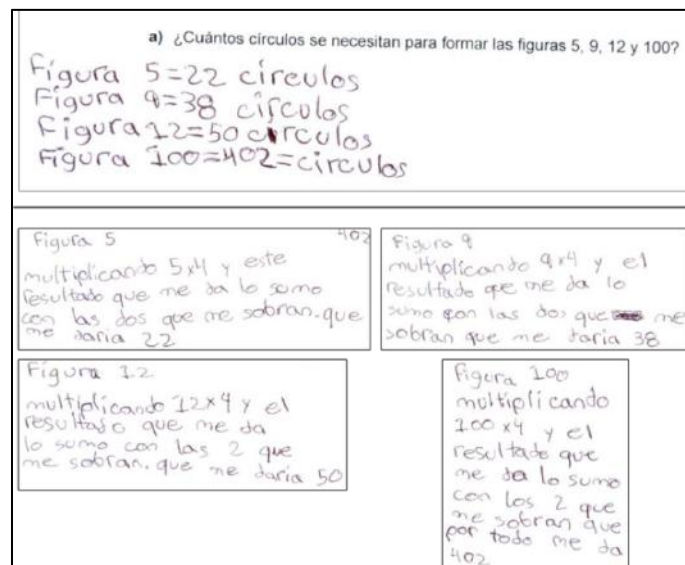 a) ¿Cuántos círculos se necesitan para formar las figuras 5, 9, 12 y 100?
Figura 5=22 círculos
Figura 9=38 círculos
Figura 12=50 círculos
Figura 100=402=círculos
Figura 5 402
multiplicando 5x4 y este
resultado que me da lo sumo
con las dos que me sobran.que
me daria 22
Figura 9
multiplicando 9x4 y el
resultado que me da lo
sumo con las dos que me
sobran que me daria 38
Figura 12
multiplicando 12x4 y el
resultado que me da
lo sumo con las 2 que
me sobran. que me daria 50
Figura 100
multiplicando
100x4 y el
resultado que
me da lo sumo
con los 2 que
me sobran que
por todo me da
402